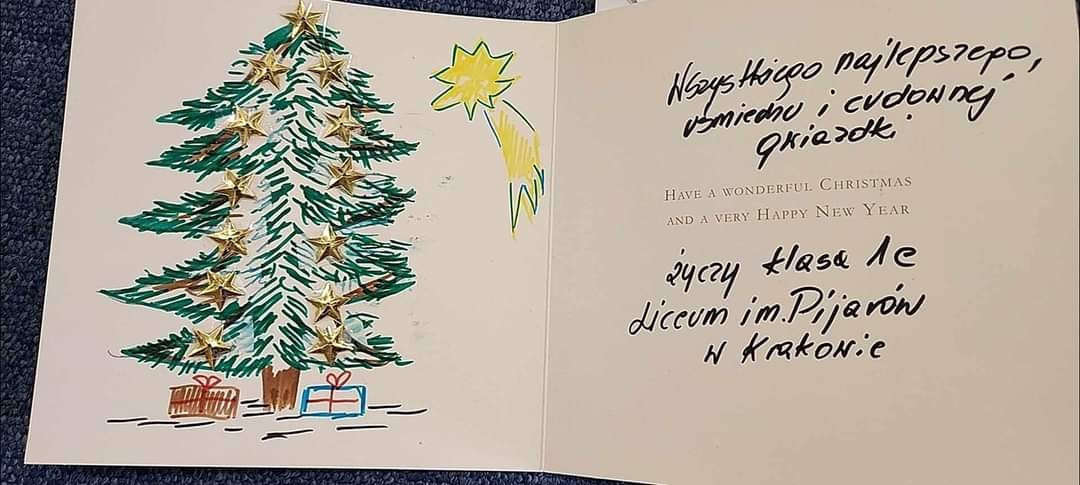 Wszystkiego najlepszego,
uśmiechu i cudownej
gwiazdki
HAVE A WONDERFUL CHRISTMAS
AND A VERY HAPPY NEW YEAR
życzy klasa 1e
Liceum im. Pijarów
w Krakowie